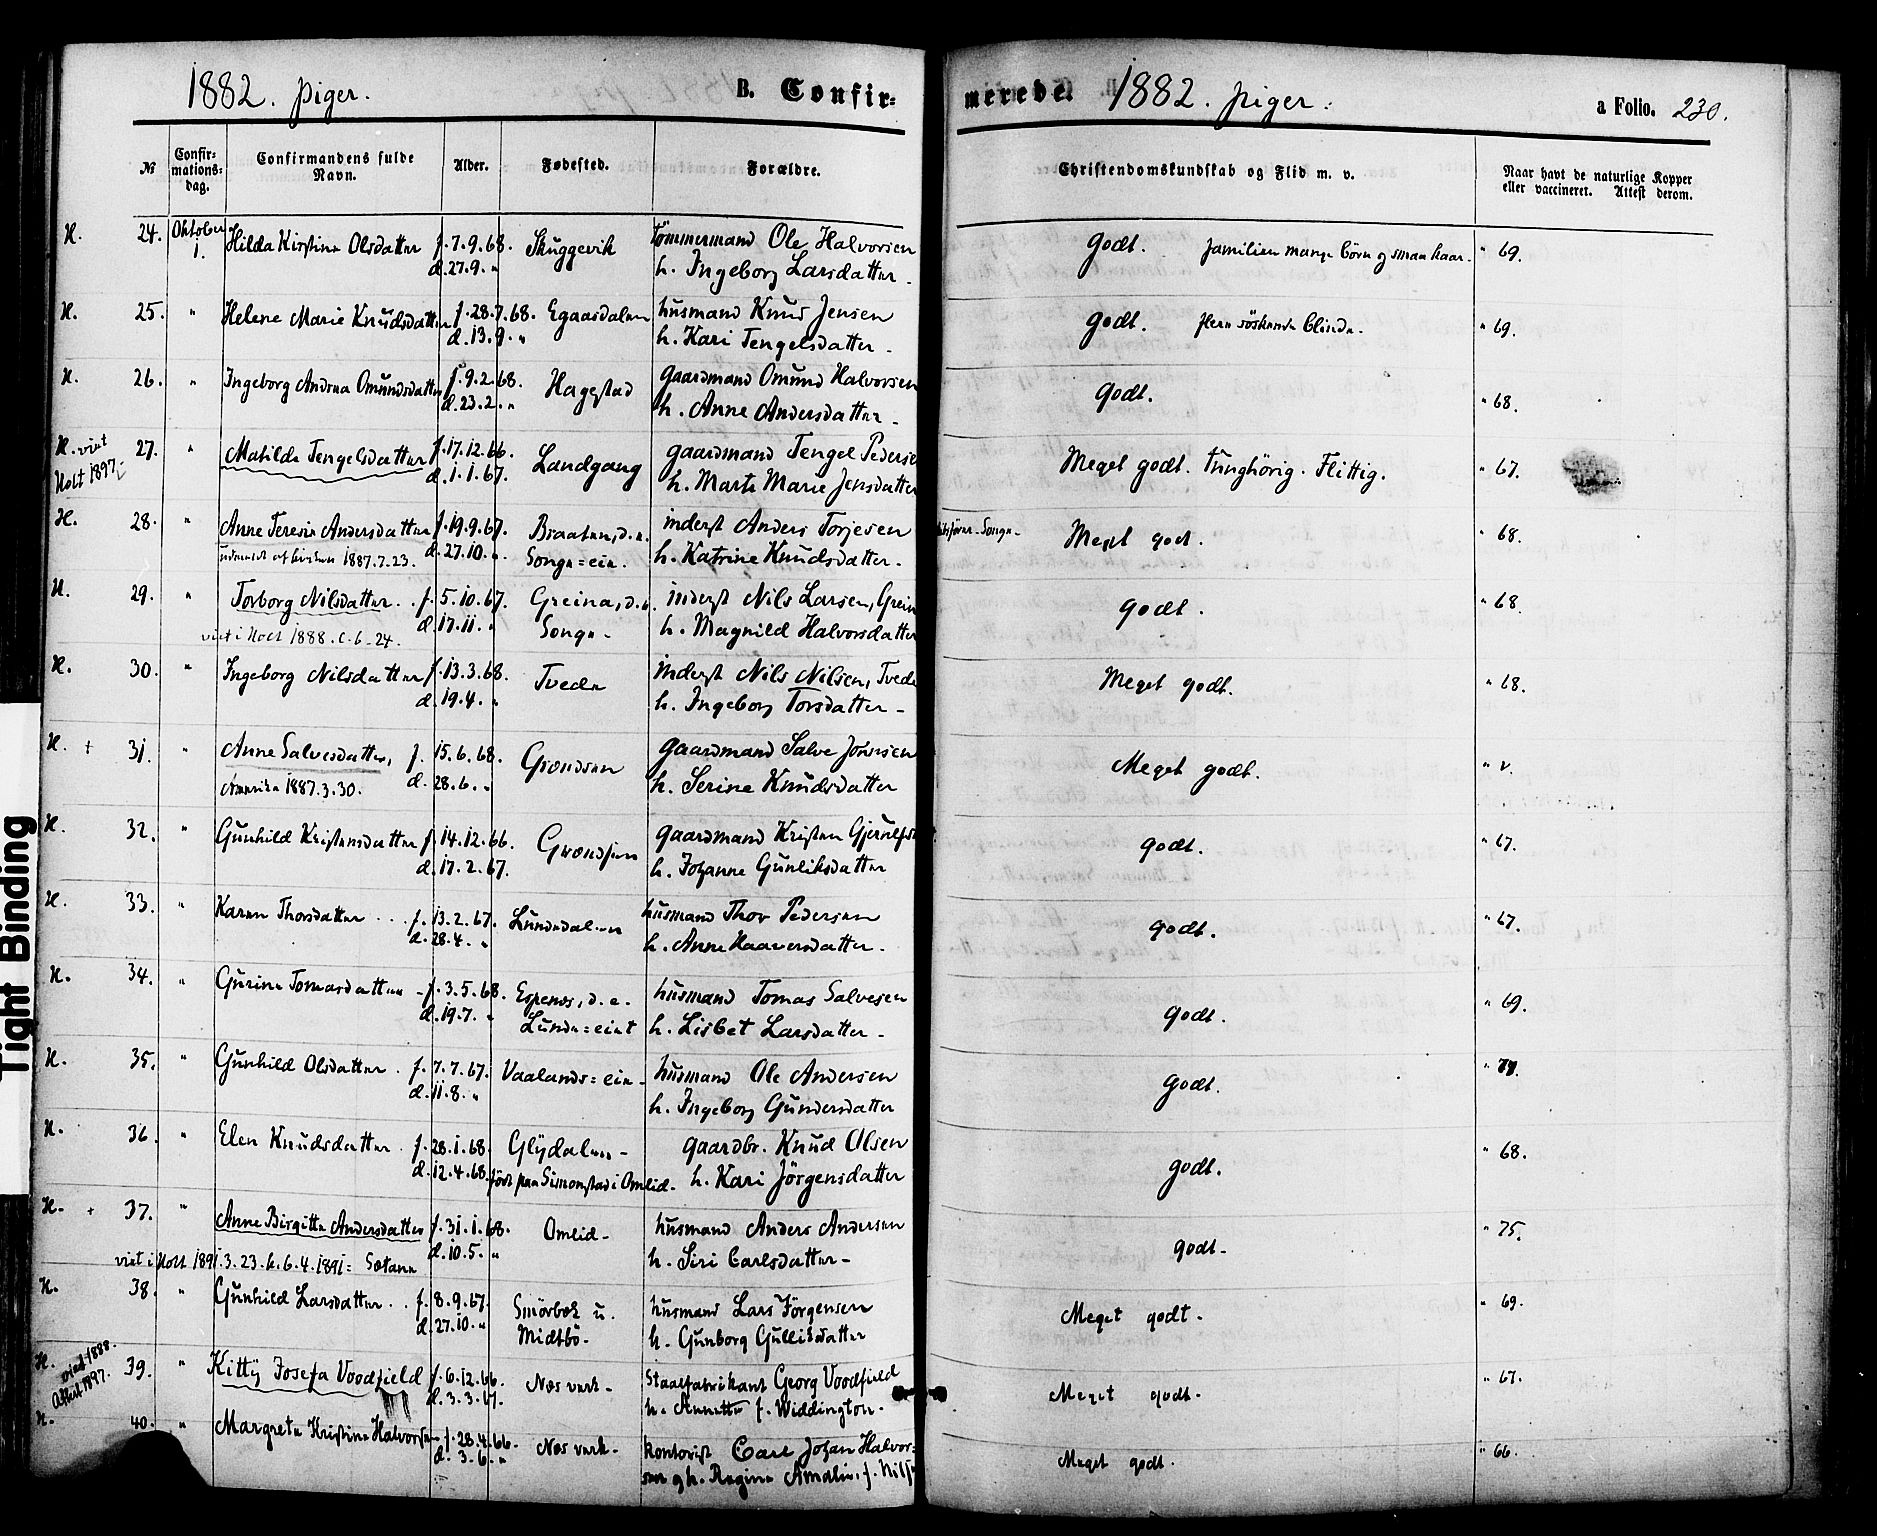 1882. piger. B. Confir=
merede. 1882. piger. a Folio. 230.
№ Confir=mations=dag. Confirmandens fulde Navn. Alder. Fødested. Forældre. Christendomskundskab og Flid m. v. Naar havt de naturlige Kopper eller vaccineret. Attest derom.
H. 24. Oktober 1. Hilda Kirstine Olsdatter f. 7.9.68. Skuggevik Tömmermand Ole Halvorsen Godt. familien mange börn og smaa kaar. " 69.
d. 27.9. " h. Ingeborg Larsdatter.
H. 25. " Helene Marie Knudsdatter f. 28.7.68. Egaasdalen husmand Knud Jensen Godt. flere söskende blinde. " 69.
d. 13.9. " h. Kari Tengelsdatter.
H. 26. " Ingeborg Andrea Omundsdatter f. 9.2.68. Hagestad gaardmand Omund Halvorsen Godt. " 68.
d. 23.2. " h. Anne Andersdatter.
H. viet 27. " Matilde Tengelsdatter f. 17.12.66. Landgang gaardmand Tengel Pederse Meget godt. tunghörig. Flittig. " 67.
Holt 1897. d. 1.1.67. h. Marte Marie Jensdatter
H. 28. " Anne Teresie Andersdatter f. 19.9.67. Braaten, d. e. inderst Anders Torjesen Songe. Meget godt. " 68.
udmeldt af kirken 1887.7.23. d. 27.10. " Songe=eie. h. Katrine Knudsdatter.
H. 29. " Torborg Nilsdatter. f. 5.10.67. Greina, d. e. inderst Nils Larsen, Grein godt. " 68.
viet i Holt 1888. 6.24. d. 17.11. " Songe. h. Magnild Halvorsdatter
H. 30. " Ingeborg Nilsdatter f. 13.3.68. Tvede inderst Nils Nilsen, Tvede Meget godt. " 68.
d. 19.4. " h. Ingeborg Torsdatter.
H. + 31. " Anne Salvesdatter, f. 15.6.68. Grændsen gaardmand Salve Meget godt. " v.
Amerika 1887.3.30. d. 28.6. " h. Serine Knudsdatter
H. 32. " Gunhild Kristensdatter f. 14.12.66. Grændsen gaardmand Kristen godt. " 67.
d. 17.2.67. h. Johanne Gunliksdatter
H. 33. " Karen Thorsdatter f. 13.2.67. Lundedalen husmand Thor Pedersen godt. " 67.
d. 28.4. " h. Anne Haaversdatter.
H. 34. " Gurine Tomasdatter f. 3.5.68. Espenes, d. e. husmand Tomas Salvesen godt. " 69.
d. 19.7. " Lunde=eiet h. Lisbet Larsdatter.
H. 35. " Gunhild Olsdatter. f. 7.7.67. Vaalands=eie husmand Ole Andersen godt.
d. 11.8. " h. Ingeborg Gundersdatter
H. 36. " Elen Knudsdatter. f. 28.1.68. Glydalen gaardbr. Knud Olsen godt. " 68.
d. 12.4.68. födt paa Simonstad i Omlid. h. Kari Jörgensdatter
H. + 37. " Anne Birgitte Andersdatter f. 31.1.68. Omlid husmand Anders Andersen godt. " 75.
viet i Holt 1891.3.23. d. 10.5. " h. Siri Carlsdatter
H. 38. " Gunhild Larsdatter. f. 8.9.67. Smörbæk u. husmand Lars Jörgensen Meget godt. " 69.
d. 27.10. " Midtbö. h. Gunborg Gulliksdatter
H. viet 1888. 39. " Kitty Josefa Voodfield f. 6.12.66. Næs verk. Staalfabrikant Georg Voodfield Meget godt. " 67.
1897. d. 3.3.67. h. Annette f. Widdington.
H. 40. " Margrete Kristine Halvorsen f. 28.4.66. Næs verk. kontorist Carl Johan Halvor= Meget godt. " 66.
d. 3.6. " sen og h. Regine Amalie f. Nils
Tight Binding